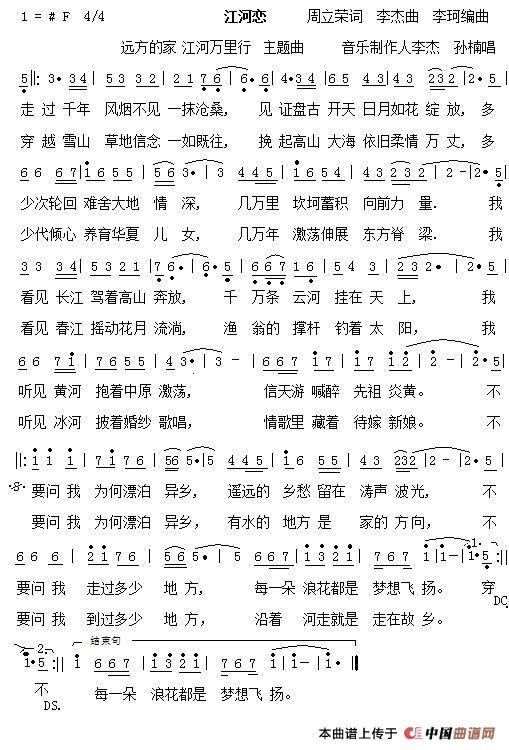 1 = # F 4/4 江河恋 周立荣词 李杰曲 李珂编曲
远方的家 江河万里行 主题曲 音乐制作人李杰 孙楠唱
5 ‖: 3· 34 | 53 32 | 21 76 | 6· | 4·34 | 53 43 | 232 | 2· 5 |
走 过 千年 风烟不见 一抹沧桑, 见 证盘古 开天 日月如花 绽 放, 多
穿 越 雪山 草地信念 一如既往, 挽 起高山 大海 依旧柔情 万 丈, 多
66 67 | 1655 | 563· | 3· | 3 445 | 1645 | 3432 | 2 - | 2· 5 |
少次轮回 难舍大地 情 深, 几万里 坎坷蓄积 向前力 量. 我
少代倾心 养育华夏 儿 女, 几万年 激荡伸展 东方脊 梁. 我
33 34 | 5321 | 76· | 6· 5 | 6 667 | 1 16 | 54 3 | 232 | 2· 5 |
看见 长江 驾着高山 奔放, 千 万条 云河 挂在 天 上, 我
看见 春江 摇动花月 流淌, 渔 翁的 撑杆 钓着 太 阳, 我
66 71 | 7655 | 43· | 3 - | 667 | 1217 | 17 12 | 2 - | 2· 5 |
听见 黄河 抱着中原 激荡, 信天游 喊醉 先祖 炎黄。 不
听见 冰河 披着婚纱 歌唱, 情歌里 藏着 待嫁 新娘。 不
‖: 11 1 | 7176 | 565· | 5 | 445 | 16 55 | 43 232 | 2 - | 2· 5 |
·S· 要问 我 为何漂泊 异乡, 遥远的 乡愁 留在 涛声 波光, 不
要问 我 为何漂泊 异乡, 有水的 地方 是 家的 方向, 不
66 6 | 2176 | 565· | 5· | 667 | 1321 | 767 | 1 | 1- | 1· 5 :‖
1.
要问 我 走过多少 地 方, 每一朵 浪花都是 梦想飞 扬。 穿
DC.
要问 我 到过多少 地 方, 沿着 河走就是 走在故 乡。
2. 结束句
1· 5 :‖ 1 667 | 1321 | 767 | 1 - | 1 - ‖
不 每一朵 浪花都是 梦想飞 扬。
DS.
本曲谱上传于 中国曲谱网